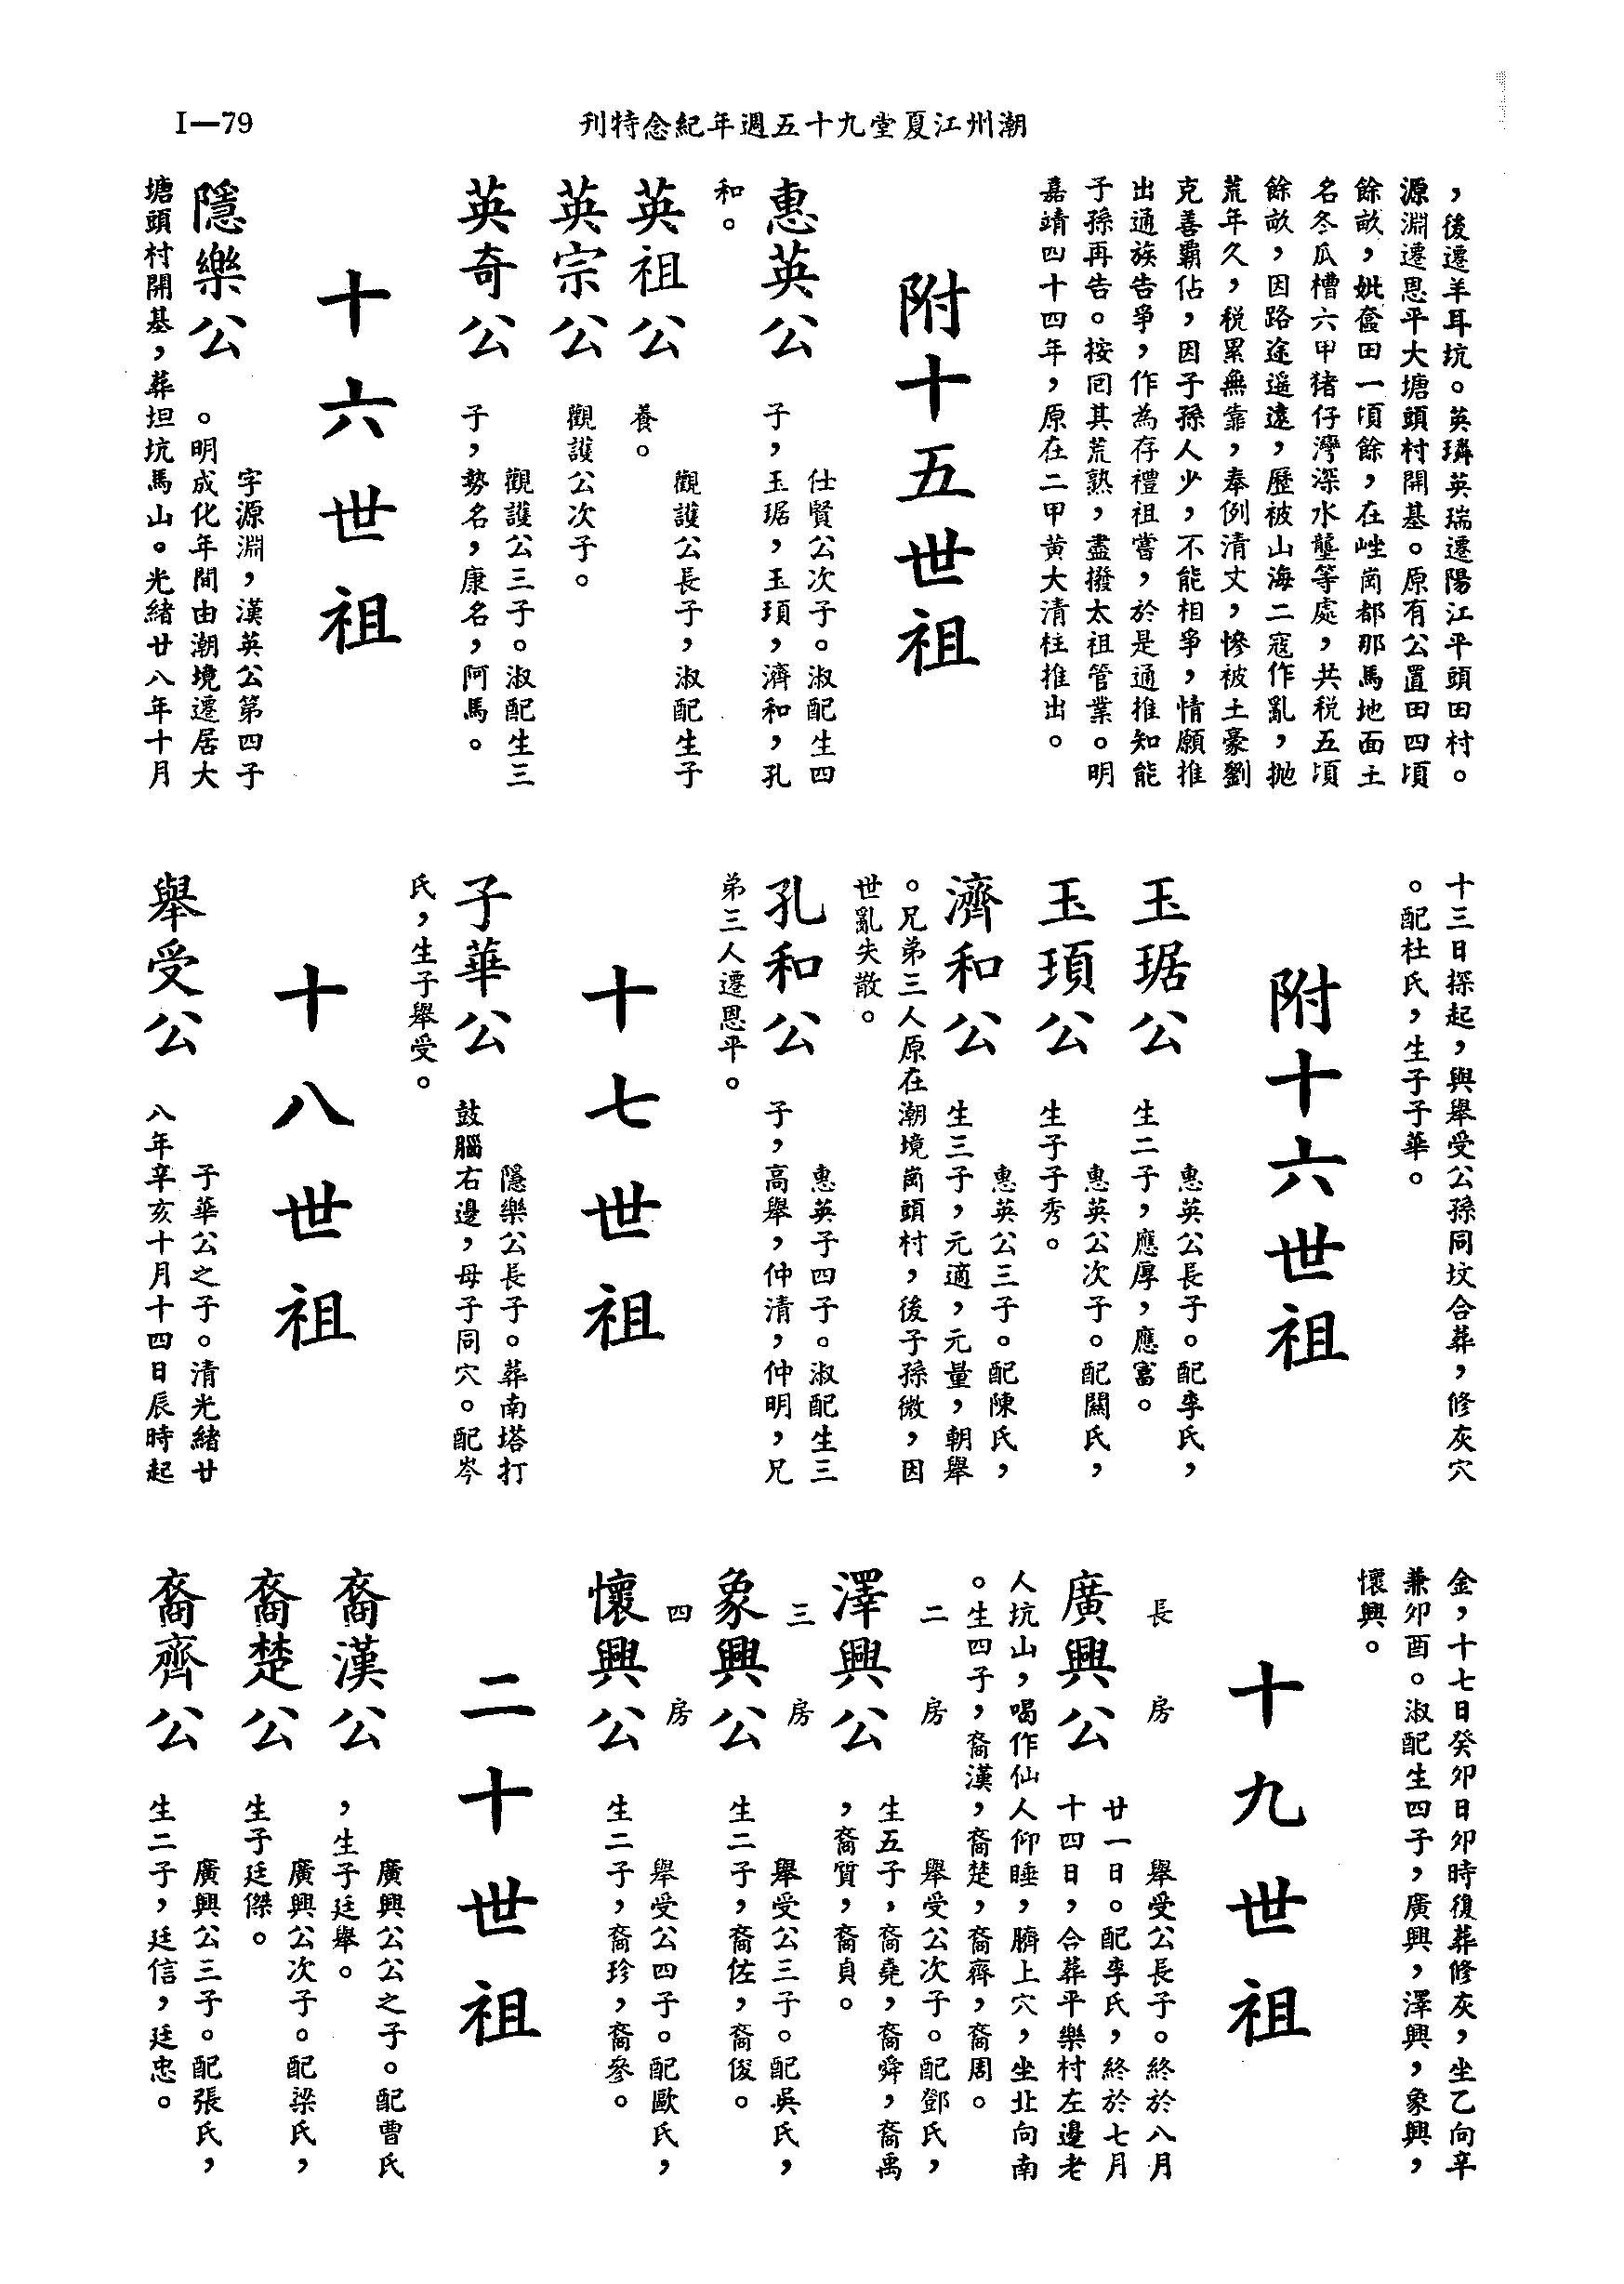 I—79
潮州江夏堂九十五週年紀念特刊
，後遷羊耳坑。英璘英瑞遷陽江平頭田村。
源淵遷恩平大塘頭村開基。原有公置田四頃
餘畝，妣奩田一項餘，在峚崗都那馬地面土
名冬瓜槽六甲猪仔灣深水壟等處，共税五頃
餘畝，因路途遥遠，歷被山海二寇作亂，抛
荒年久，税累無靠，奉例清丈，慘被土豪劉
克善霸佔，因子孫人少，不能相爭，情願推
出通族告爭，作為存禮祖嘗，於是通推知能
子孫再告。按囘其荒熟，盡撥太祖管業。明
嘉靖四十四年，原在二甲黄大清柱推出。
附十五世祖
惠英公
仕賢公次子。淑配生四
子，玉琚，玉頊，濟和，孔
和。
英祖公
觀護公長子，淑配生子
養。
英宗公
觀護公次子。
英奇公
觀護公三子。淑配生三
子，勢名，康名，阿馬。
十六世祖
隱樂公
字源淵，漢英公第四子
。明成化年間由潮境遷居大
塘頭村開基，葬坦坑馬山。光緒廿八年十月
十三日探起，與舉受公孫同坟合葬，修灰穴
。配杜氏，生子子華。
附十六世祖
玉琚公
惠英公長子。配李氏，
生二子，應厚，應富。
玉頊公
惠英公次子。配關氏，
生子子秀。
濟和公
惠英公三子。配陳氏，
生三子，元適，元量，朝舉
。兄弟三人原在潮境崗頭村，後子孫微，因
世亂失散。
孔和公
惠英子四子。淑配生三
子，高舉，仲清，仲明，兄
弟三人遷恩平。
十七世祖
子華公
隱樂公長子。葬南塔打
鼓腦右邊，母子同穴。配岑
氏，生子舉受。
十八世祖
舉受公
子華公之子。清光緒廿
八年辛亥十月十四日辰時起
金，十七日癸卯日卯時復葬修灰，坐乙向辛
兼卯酉。淑配生四子，廣興，澤興，象興，
懷興。
十九世祖
長房
廣興公
舉受公長子。終於八月
廿一日。配李氏，終於七月
十四日，合葬平樂村左邊老
人坑山，喝作仙人仰睡，臍上穴，坐北向南
。生四子，裔漢，裔楚，裔齊，裔周。
二房
澤興公
舉受公次子。配鄧氏，
生五子，裔堯，裔舜，裔禹
，裔質，裔貞。
三房
象興公
舉受公三子。配吳氏，
生二子，裔佐，裔俊。
四房
懷興公
舉受公四子。配歐氏，
生二子，裔珍，裔參。
二十世祖
裔漢公
廣興公公之子。配曹氏
，生子廷舉。
裔楚公
廣興公次子。配梁氏，
生子廷傑。
裔齊公
廣興公三子。配張氏，
生二子，廷信，廷忠。